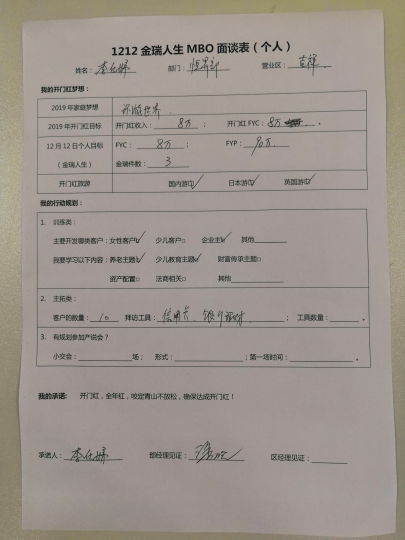 1212金瑞人生MBO面谈表（个人）
姓名： 李 娣 部门：恒昇部 营业区：吉祥
我的开门红梦想：
2019年家庭梦想 环游世界
2019年开门红目标 开门红收入： 8万 ； 开门红FYC： 8万 。
12月12日个人目标 FYC： 8万 ； FYP： 90万
（金瑞人生） 金瑞件数： 3
开门红旅游 国内游□✓ 日本游□✓ 英国游□✓
我的行动规划：
1. 训练类：
主要开发哪类客户：女性客户☑ 少儿客户□ 企业主☑ 其他
我要学习以下内容：养老主题☑ 少儿教育主题☑ 财富传承主题□
资产配置□ 法商相关□ 其他
2. 主拓类：
客户的数量： 10 拜访工具： 信用卡、银行 ； 工具数量： 。
3. 有规划参加产说会？
小交会： 场； 形式： ；第一场时间： 。
我的承诺： 开门红，全年红，咬定青山不放松，确保达成开门红！
承诺人： 李 娣 部经理见证： 区经理见证：